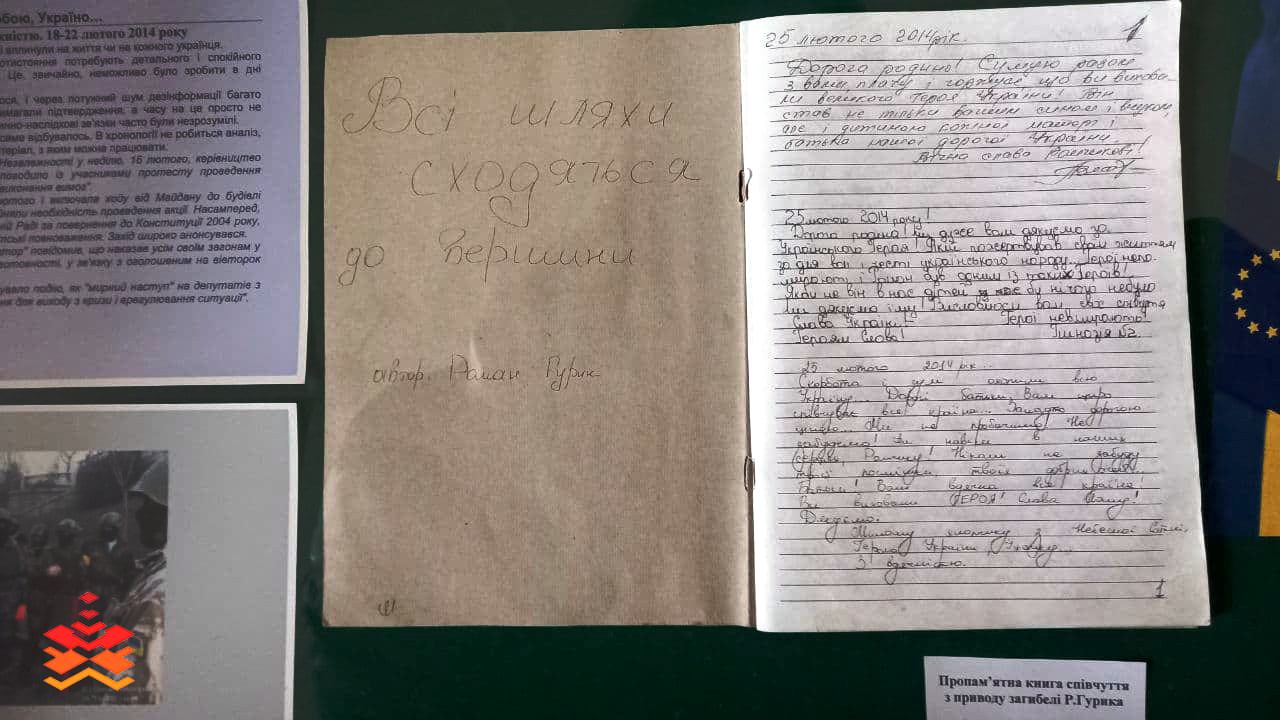 обою, Україно...
жністю. 18-22 лютого 2014 року
і вплинули на життя чи не кожного українця.
отистояння потребують детального і спокійного
Це, звичайно, неможливо було зробити в дні
ося, і через потужний шум дезінформації багато
имагали підтвердження, а часу на це просто не
нно-наслідкові зв'язки часто були незрозумілі.
саме відбувалось. В хронології не робиться аналіз,
теріал, з яким можна працювати.
Незалежності у неділю, 16 лютого, керівництво
поводило із учасниками протесту проведення
виконання вимог".
ютого і включала ходу від Майдану до будівлі
няли необхідність проведення акції. Насамперед,
ній Раді за повернення до Конституції 2004 року,
тські повноваження. Захід широко анонсувався.
тор" повідомив, що наказав усім своїм загонам у
готовності, у зв'язку з оголошеним на вівторок
увало подію, як "мирний наступ" на депутатів з
ня для виходу з кризи і врегулювання ситуації".
Всі шляхи
сходяться
до вершини
автор. Роман Гурик
25 лютого 2014 рік.
1
Дорога родино! Сумую разом
з вами, плачу і горджуся що ви вихова-
ли великого Героя України! Він
став не тільки вашим сином і внуком,
але і дитиною кожної матері і
батька нашої дорогої України.
Вічна слава Романові!
25 лютого 2014 року!
Дорога родино! ми дуже вам дякуємо за
Українського Героя! Який пожертвував своїм життям
за для волі і честі українського народу. Герої невми-
рають і Роман був одним із таких Героїв!
Якби не він в нас дітей би нічого небуло
Ми дякуємо йому! Висловлюєм вам своє співчуття
Слава Україні! Герої невмирають!
Героям Слава! Гімназія №2.
25 лютого 2014 рік.
Скорбота і сум охопили всю
Україну... Дорогі батьки, Вам щиро
співчуває вся країна... Занадто дорогою
ціною... Ми не пробачимо! Не
забудемо! Ти навіки в наших
серцях, Ромчику! Ніколи не забуду
твої твоїх добрих
Батьки! Вам вдячна вся країна!
Ви виховали ГЕРОЯ! Слава Йому!
Дякуємо.
Милому хлопчику з Небесної Сотні,
Герою України
З вдячністю.
1
Пропам'ятна книга співчуття
з приводу загибелі Р.Гурика